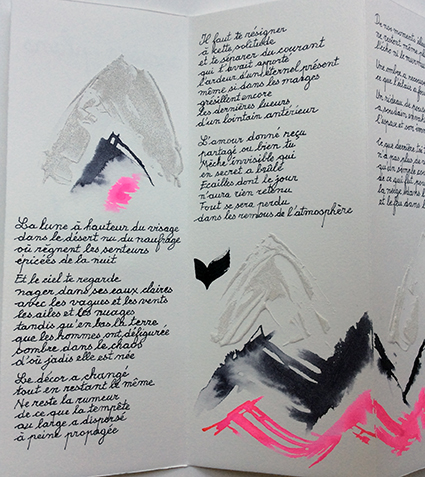 La lune à hauteur du visage
dans le désert nu du naufrage
où règnent les senteurs
épicées de la nuit
Et le ciel te regarde
nager dans ses eaux claires
avec les vagues et les vents
les ailes et les nuages
tandis qu'en bas la terre
que les hommes ont défigurée
sombre dans le chaos
d'où jadis elle est née
Le décor a changé
tout en restant le même
Ne reste la rumeur
de ce que la tempête
au large a dispersé
à peine propagée
Il faut te résigner
à cette solitude
et te séparer du courant
qui t'avait apporté
l'ardeur d'un éternel présent
même si dans les marges
grésillent encore
les dernières lueurs
d'un lointain antérieur
L'amour donné reçu
partagé ou bien tu
Mèche invisible qui
en secret a brûlé
Écailles dont le jour
n'aura rien retenu
Tout se sera perdu
dans les remous de l'atmosphère
De nos moments
ne restent même
Une ombre a
Un rideau de
a soudain
l'espace et son
Ce que derrière
n'a res plus
qu'un simple
de ce qui fut
la neige
et le feu dans